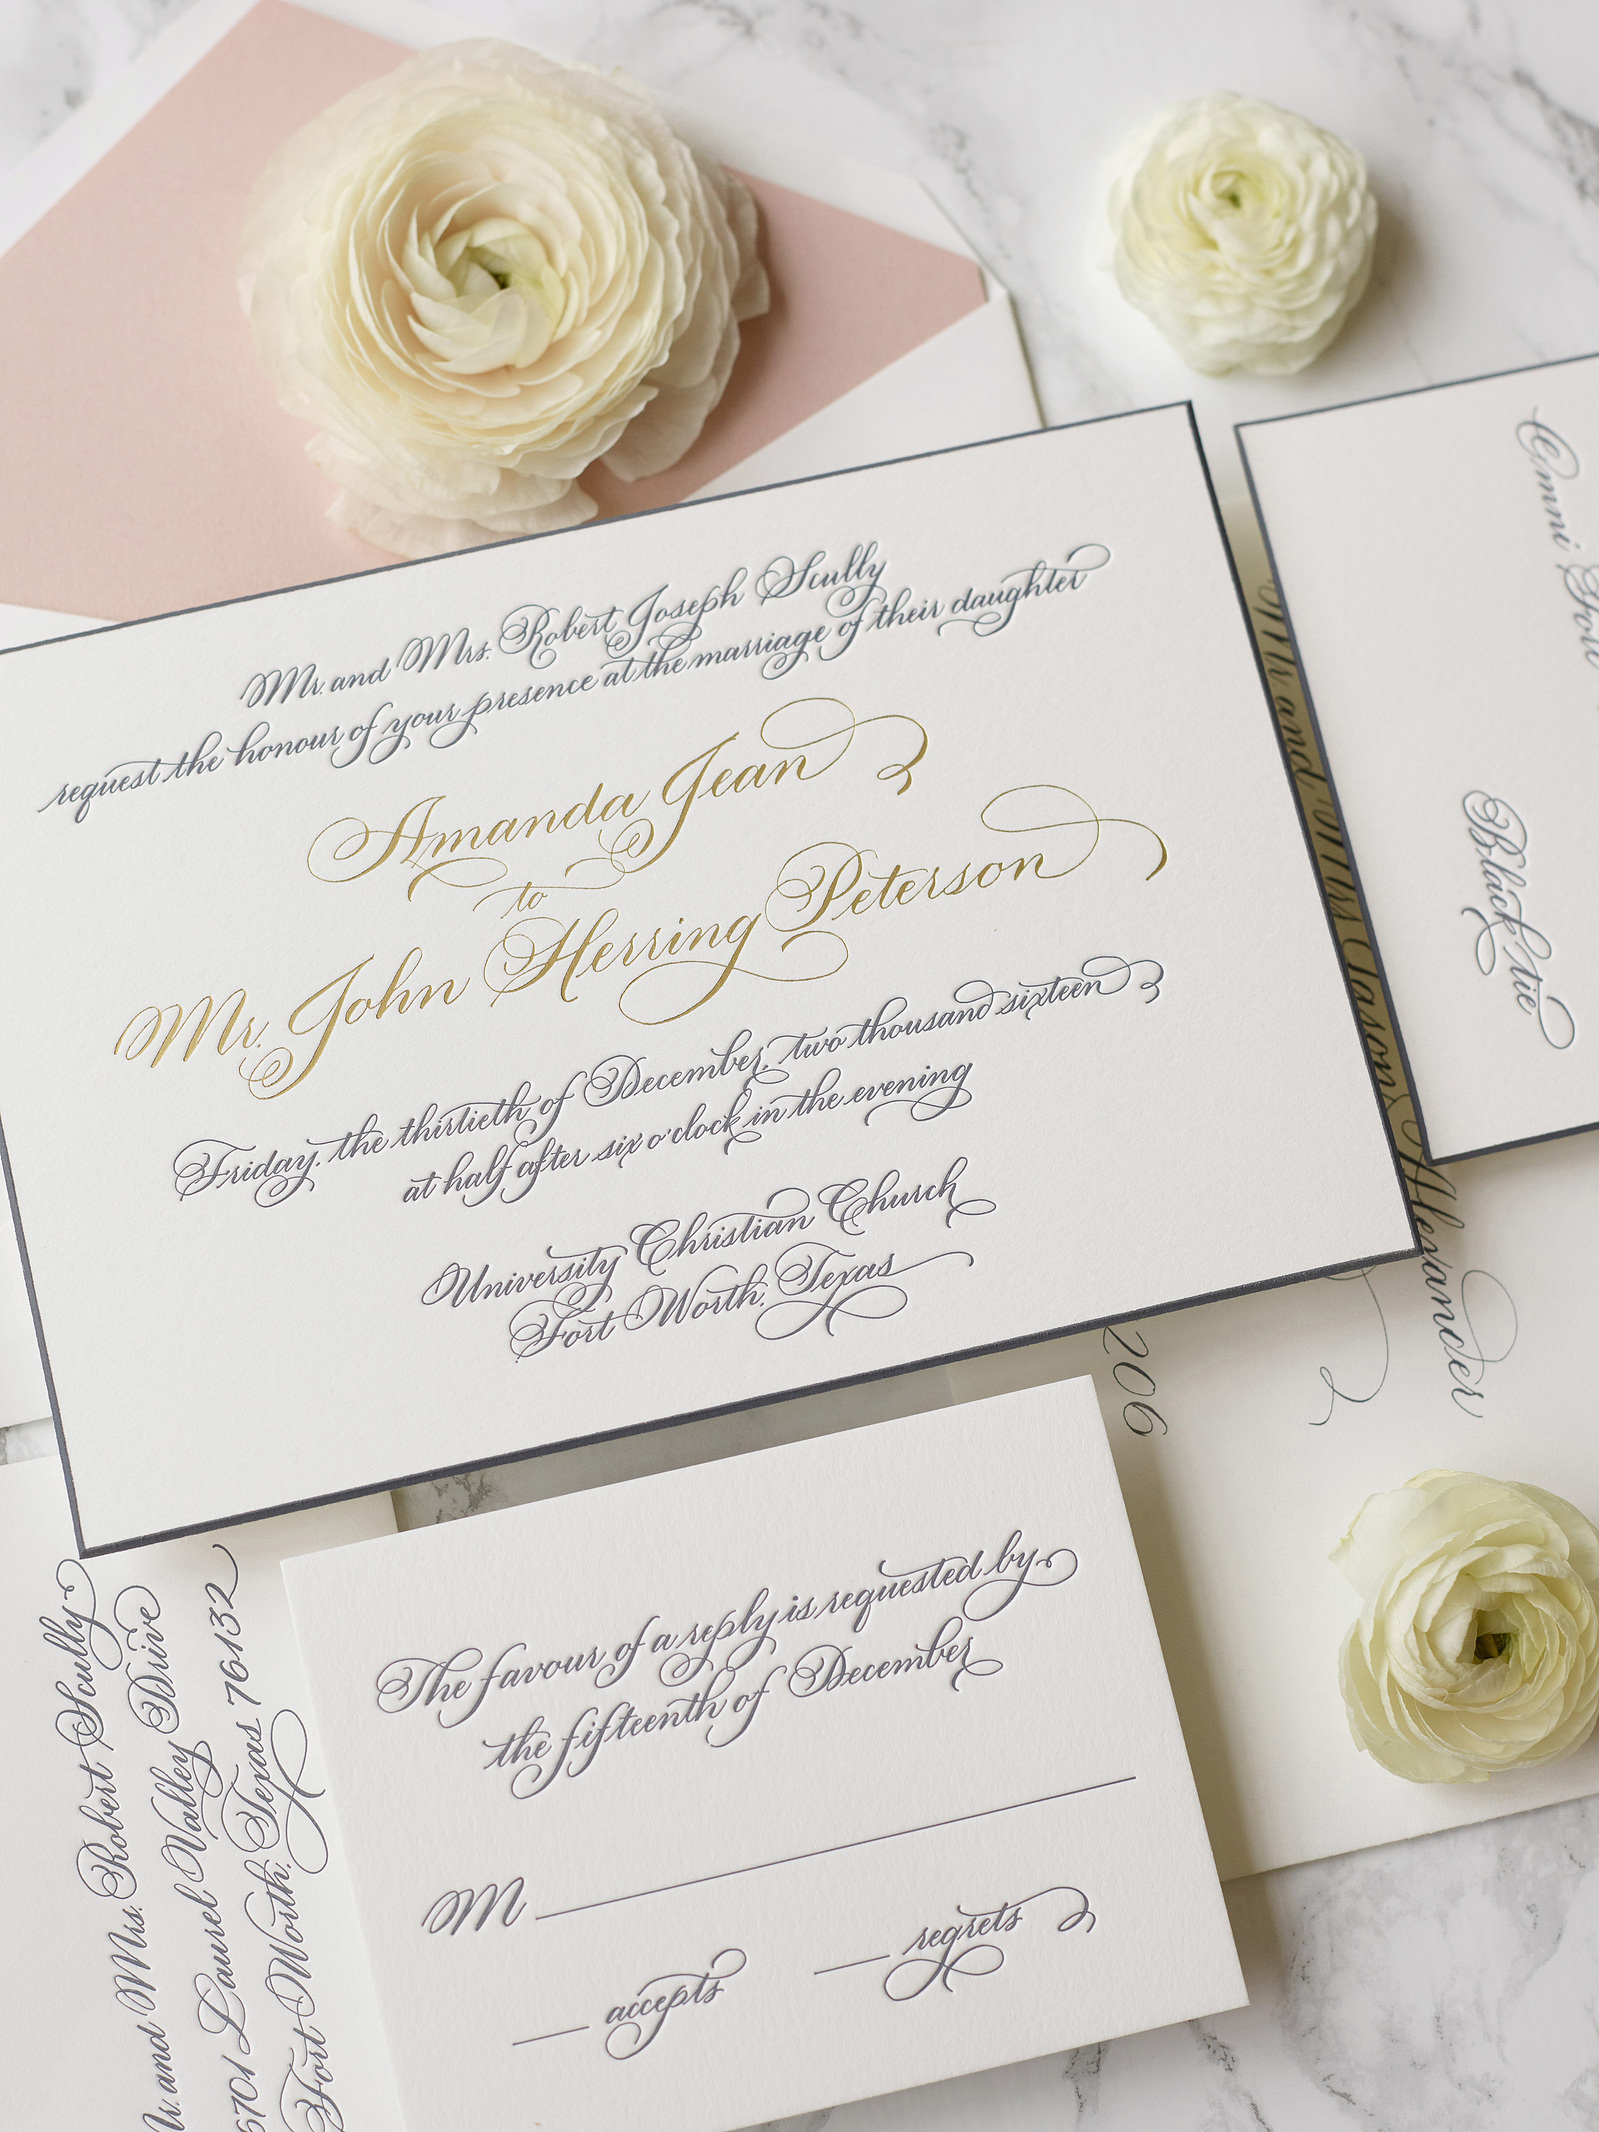 Mr. and Mrs. Robert Joseph Scully
request the honour of your presence at the marriage of their daughter
Amanda Jean
to
Mr. John Herring Peterson
Friday, the thirtieth of December, two thousand sixteen
at half after six o'clock in the evening
University Christian Church
Fort Worth, Texas
Omni Fort
Black tie
and
Jason Alexander
206
The favour of a reply is requested by
the fifteenth of December
M
accepts
regrets
and Mrs. Robert Scully
6701 Laurel Valley Drive
Fort Worth, Texas 76132